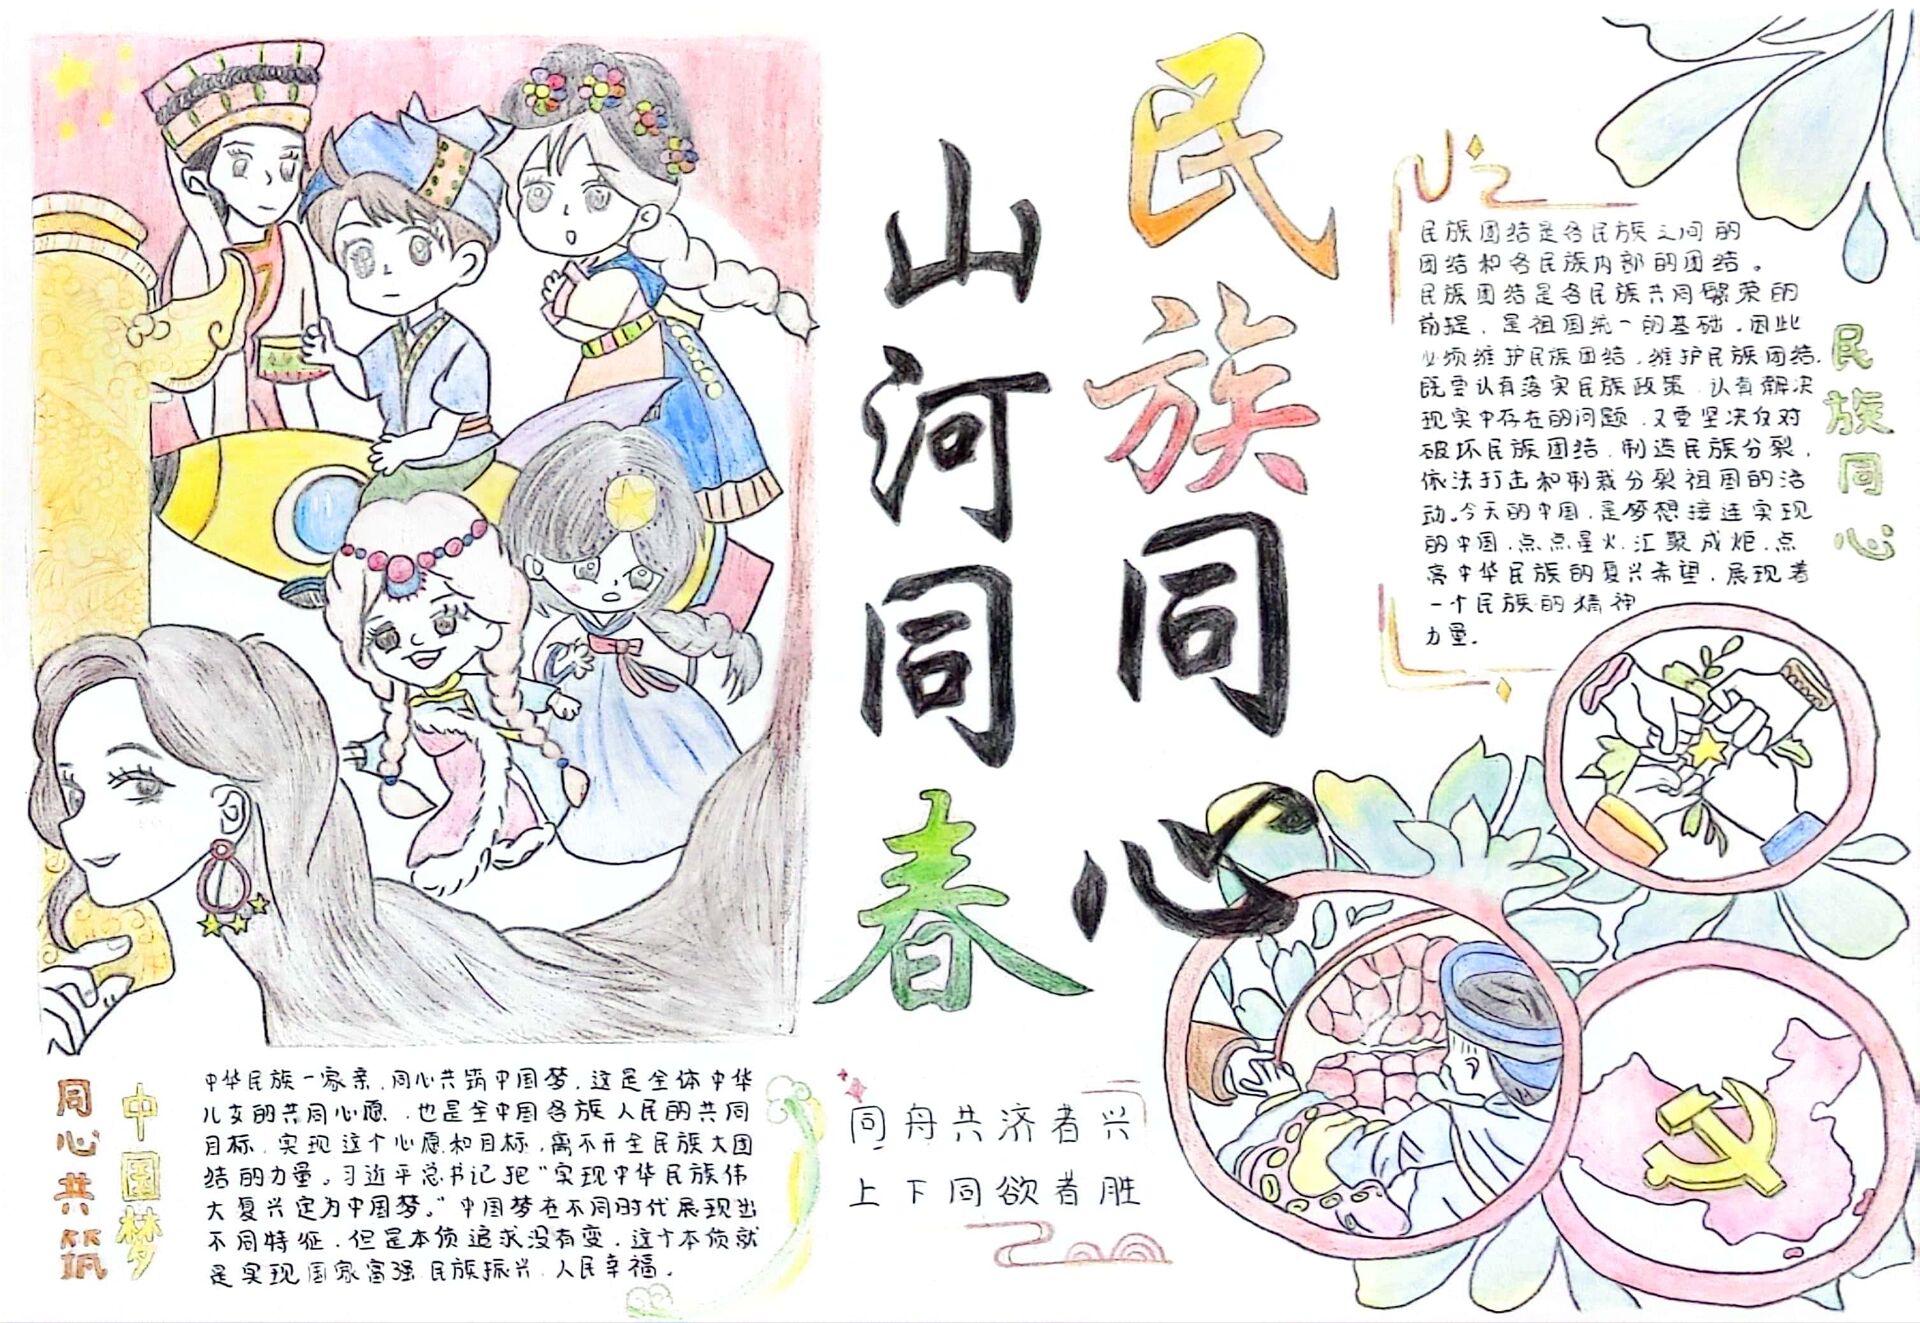 民族同心
山河同春
民族团结是各民族之间的
团结和各民族内部的团结。
民族团结是各民族共同繁荣的
前提，是祖国统一的基础，因此
必须维护民族团结，维护民族团结，
既要认真落实民族政策，认真解决
现实中存在的问题，又要坚决反对
破坏民族团结，制造民族分裂，
依法打击和制裁分裂祖国的活
动。今天的中国，是梦想接连实现
的中国，点点星火，汇聚成炬，点
亮中华民族的复兴希望，展现着
一个民族的精神
力量。
民族同心
同舟共济者兴
上下同欲者胜
中国梦
同心共筑
中华民族一家亲，同心共筑中国梦，这是全体中华
儿女的共同心愿，也是全中国各族人民的共同
目标，实现这个心愿和目标，离不开全民族大团
结的力量。习近平总书记把“实现中华民族伟
大复兴定为中国梦。”中国梦在不同时代展现出
不同特征，但是本质追求没有变，这个本质就
是实现国家富强，民族振兴，人民幸福。